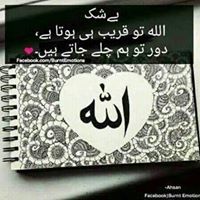 بےشک
الله تو قریب ہی ہوتا ہے،
دور تو ہم چلے جاتے ہیں۔
Facebook.com/BurntEmotions
الله
-Ahsan
Facebook|Burnt Emotions